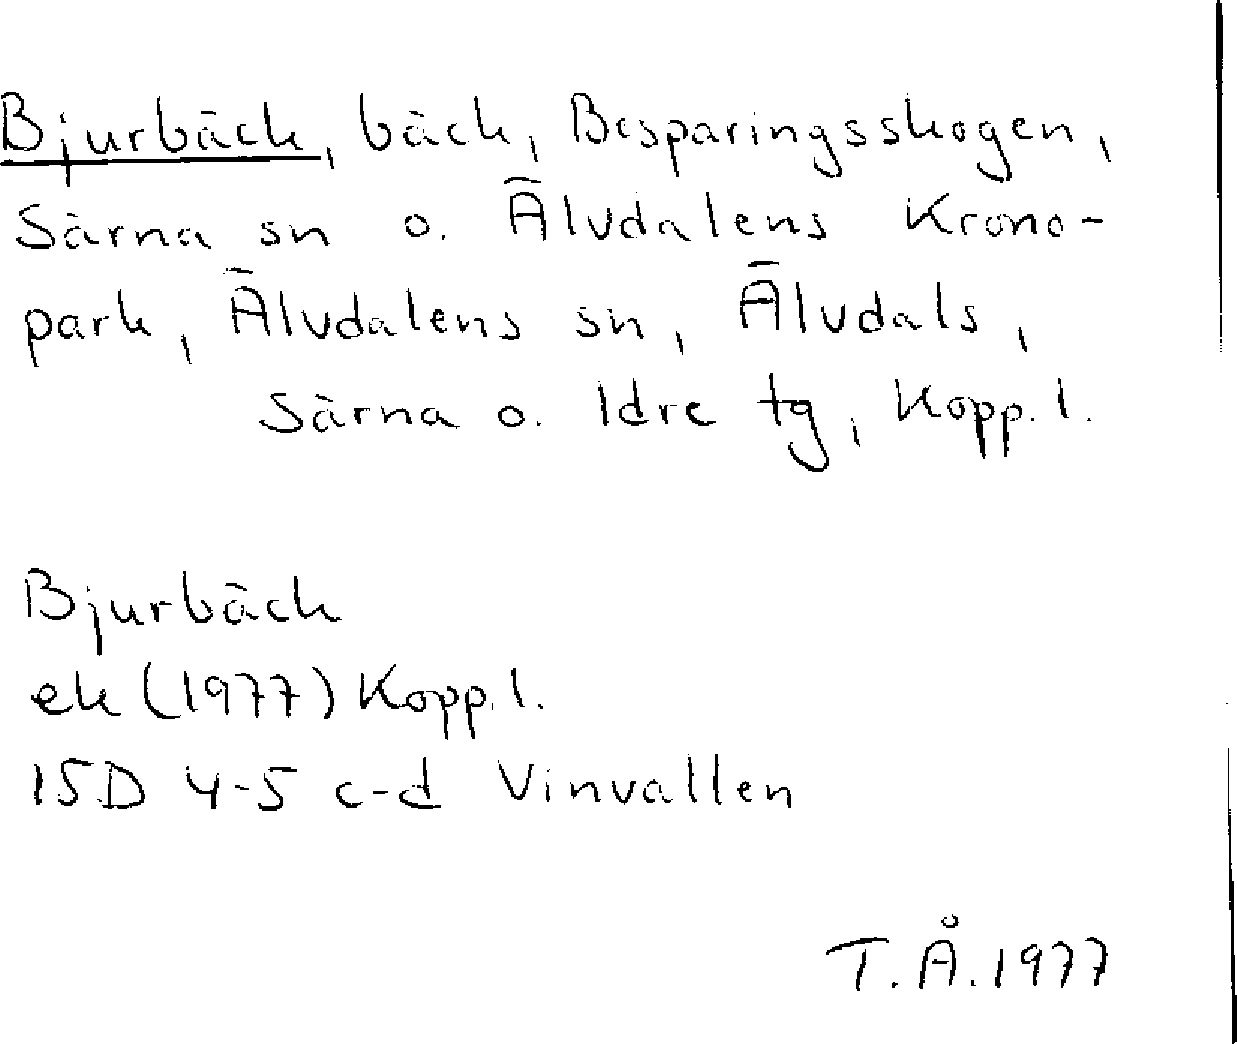 Bjurbäck, bäck, Besparingsskogen,
Särna sn o. Älvdalens Krono-
park, Älvdalens sn, Älvdals,
Särna o. Idre tg, Kopp. l.
Bjurbäck
ek (1977) Kopp. l.
15D 4-5 c-d Vinvallen
T.Å.1977